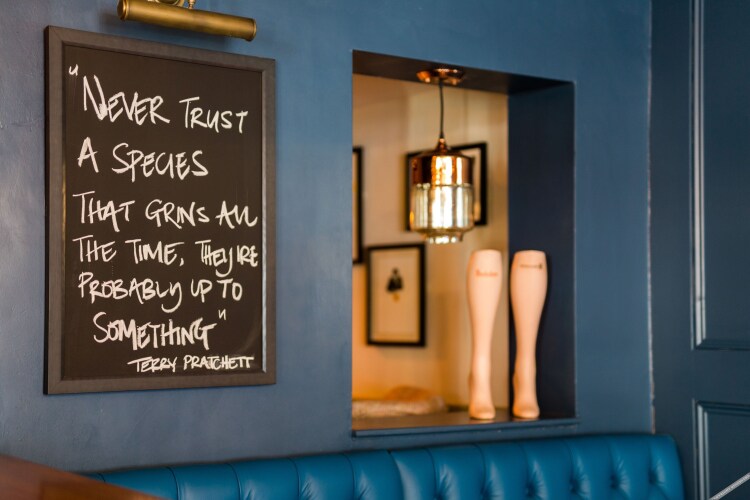 "NEVER TRUST
A SPECIES
THAT GRINS ALL
THE TIME, THEY'RE
PROBABLY UP TO
SOMETHING"
TERRY PRATCHETT